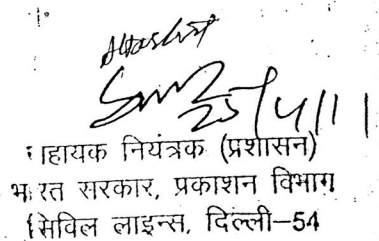 Attested
25/4/11
सहायक नियंत्रक (प्रशासन)
भारत सरकार, प्रकाशन विभाग
सिविल लाइन्स, दिल्ली–54